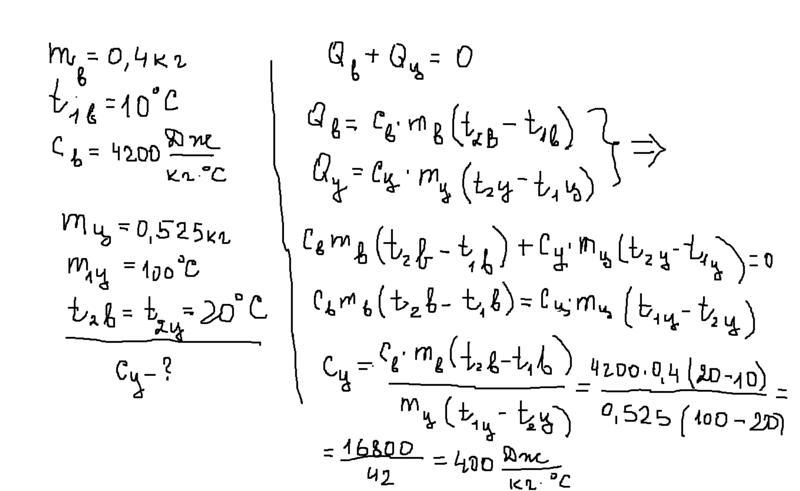 m_в = 0,4 кг
t_1в = 10°C
c_в = 4200 Дж/кг·°C
m_ц = 0,525 кг
m_1ц = 100°C
t_2в = t_2ц = 20°C
c_ц - ?
Q_в + Q_ц = 0
Q_в = c_в · m_в (t_2в - t_1в)
Q_ц = c_ц · m_ц (t_2ц - t_1ц) } ⇒
c_в m_в (t_2в - t_1в) + c_ц · m_ц (t_2ц - t_1ц) = 0
c_в m_в (t_2в - t_1в) = c_ц · m_ц (t_1ц - t_2ц)
c_ц = c_в · m_в (t_2в - t_1в) / m_ц (t_1ц - t_2ц) = 4200 · 0,4 (20 - 10) / 0,525 (100 - 20) =
= 16800 / 42 = 400 Дж/кг·°C